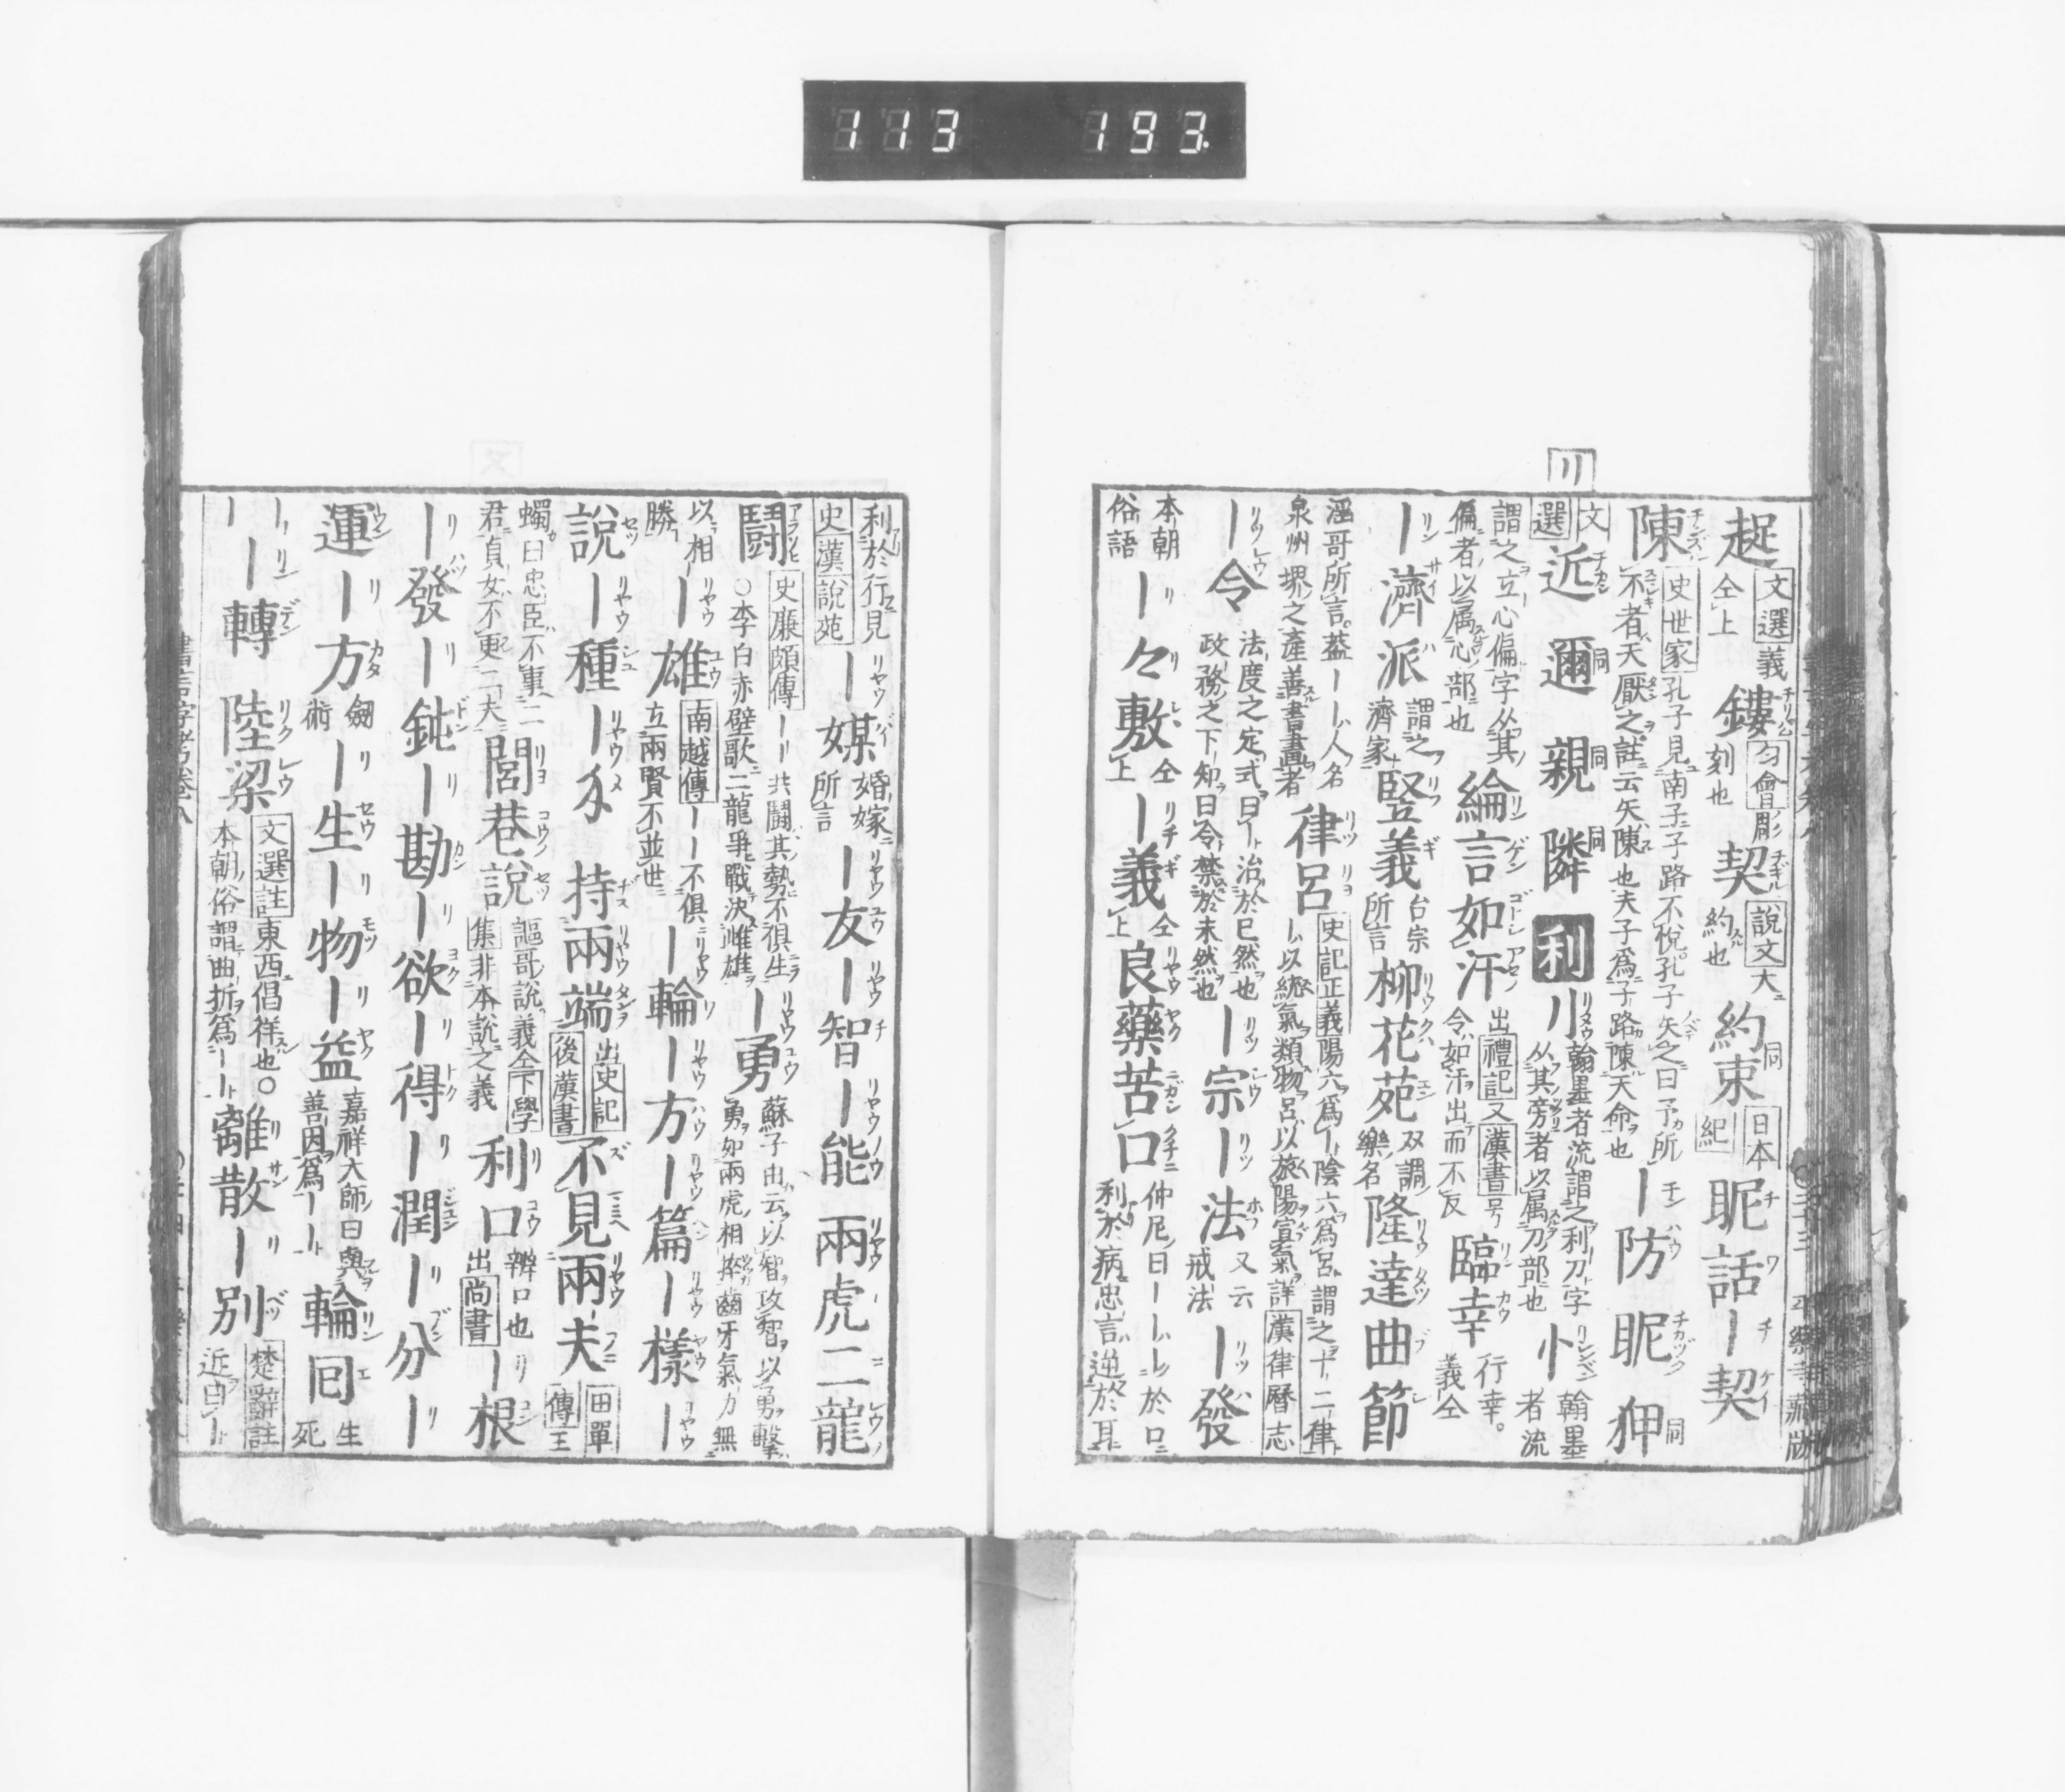 113 193.
リ
趗 文選義仝上 鏤 匀會彫刻也 契 說文大約也 約束 日本紀 昵話 ー契
陳 史世家孔子見南子子路不悅孔子矢之曰予所不者天厭之註云矢陳也夫子爲子路陳天命也 ー防 昵 狎
文選 近 邇 親 隣 利 刂 翰墨者流謂之利刀字从其旁者以属刀部也 忄 翰墨者流
謂之立心偏字从其偏者以属心部也 綸言如汗 出禮記又漢書号令如汗出而不反 臨幸 行幸義仝
ー濟派 謂之濟家 竪義 台宗所言 柳花苑 双調樂名 隆達曲節
滔哥所言蓋ーー人名泉州堺之產善書畫者 律呂 史記正義陽六爲ー陰六爲呂謂之十二律ー以統氣類物呂以旅陽宣氣詳漢律曆志
ー令 法度之定式曰ー治於已然也政務之下知曰令禁於未然也 ー宗 ー法 又云戒法 ー發
本朝俗語 ー々敷 仝上 ー義 仝上 良藥苦口 仲尼曰ーーー於口利於病忠言逆於耳
利於行見史漢說苑 ー媒 婚嫁所言 ー友 ー智 ー能 兩虎二龍
鬪 史廉頗傳ーー共鬪其勢不俱生○李白赤壁歌二龍爭戰決雌雄 ー勇 蘇子由云以智攻智以勇擊勇如兩虎相捽齒牙氣力無
以相勝 ー雄 南越傳ーー不俱立兩賢不並世 ー輪 ー方 ー篇 ー樣 ー
說 ー種 ー 持兩端 出史記後漢書 不見兩夫 田單傳王
蠋曰忠臣不事二君貞女不更二夫 閭巷說 謳哥說義仝下學集非本說之義 利口 辨口也出尚書 ー根
ー發 ー鈍 ー勘 ー欲 ー得 ー潤 ー分 ー
運 ー方 劔術 ー生 ー物 ー益 嘉祥大師曰與善因爲ーー 輪回 生死
ー ー ー轉 陸梁 文選註東西倡祥也○本朝俗謂曲折爲ーー 離散 ー别 楚辭註近曰ー